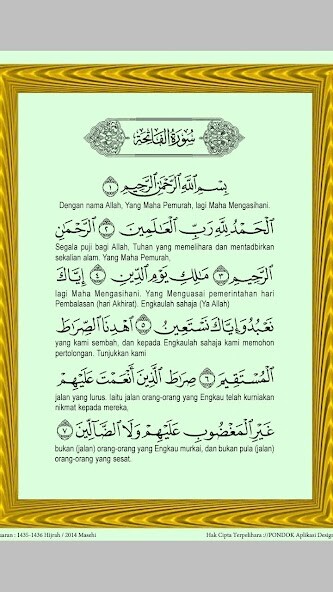 سُورَةُ الْفَاتِحَةِ
بِسْمِ اللَّهِ الرَّحْمَٰنِ الرَّحِيمِ ١
Dengan nama Allah, Yang Maha Pemurah, lagi Maha Mengasihani.
الْحَمْدُ لِلَّهِ رَبِّ الْعَالَمِينَ ٢ الرَّحْمَٰنِ
Segala puji bagi Allah, Tuhan yang memelihara dan mentadbirkan
sekalian alam. Yang Maha Pemurah,
الرَّحِيمِ ٣ مَالِكِ يَوْمِ الدِّينِ ٤ إِيَّاكَ
lagi Maha Mengasihani. Yang Menguasai pemerintahan hari
Pembalasan (hari Akhirat). Engkaulah sahaja (Ya Allah)
نَعْبُدُ وَإِيَّاكَ نَسْتَعِينُ ٥ اهْدِنَا الصِّرَاطَ
yang kami sembah, dan kepada Engkaulah sahaja kami memohon
pertolongan. Tunjukkan kami
الْمُسْتَقِيمَ ٦ صِرَاطَ الَّذِينَ أَنْعَمْتَ عَلَيْهِمْ
jalan yang lurus. Iaitu jalan orang-orang yang Engkau telah kurniakan
nikmat kepada mereka,
غَيْرِ الْمَغْضُوبِ عَلَيْهِمْ وَلَا الضَّالِّينَ ٧
bukan (jalan) orang-orang yang Engkau murkai, dan bukan pula (jalan)
orang-orang yang sesat.
aran : 1435-1436 Hijrah / 2014 Masehi
Hak Cipta Terpelihara ://PONDOK Aplikasi Design